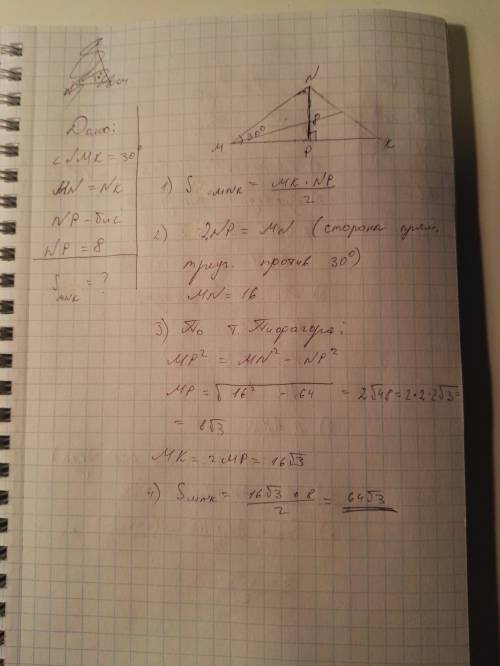 N
8
M 30° P K
Дано:
∠NMK = 30°
MN = NK
NP - бис
NP = 8
S MNK = ?
1) S MNK = MK · NP / 2
2) 2NP = MN (сторона прям.
треуг. против 30°)
MN = 16
3) По т. Пифагора:
MP² = MN² - NP²
MP = √16² - 64 = 2√48 = 2·2·2√3 =
= 8√3
MK = 2MP = 16√3
4) S MNK = 16√3 · 8 / 2 = 64√3